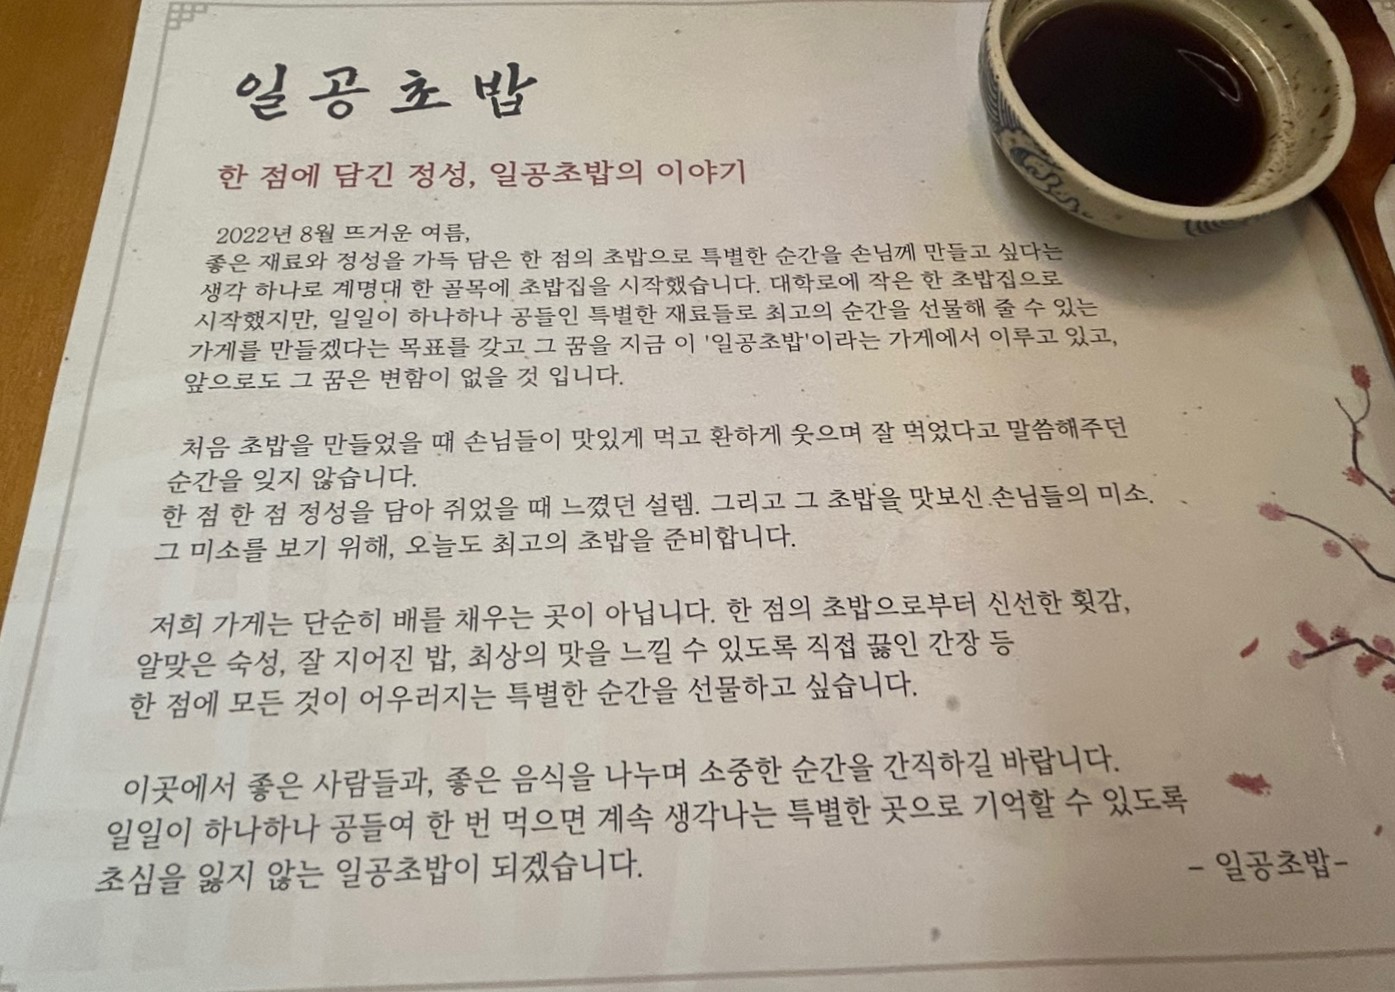 일공초밥
한 점에 담긴 정성, 일공초밥의 이야기
2022년 8월 뜨거운 여름,
좋은 재료와 정성을 가득 담은 한 점의 초밥으로 특별한 순간을 손님께 만들고 싶다는
생각 하나로 계명대 한 골목에 초밥집을 시작했습니다. 대학로에 작은 한 초밥집으로
시작했지만, 일일이 하나하나 공들인 특별한 재료들로 최고의 순간을 선물해 줄 수 있는
가게를 만들겠다는 목표를 갖고 그 꿈을 지금 이 '일공초밥'이라는 가게에서 이루고 있고,
앞으로도 그 꿈은 변함이 없을 것 입니다.
처음 초밥을 만들었을 때 손님들이 맛있게 먹고 환하게 웃으며 잘 먹었다고 말씀해주던
순간을 잊지 않습니다.
한 점 한 점 정성을 담아 쥐었을 때 느꼈던 설렘. 그리고 그 초밥을 맛보신 손님들의 미소.
그 미소를 보기 위해, 오늘도 최고의 초밥을 준비합니다.
저희 가게는 단순히 배를 채우는 곳이 아닙니다. 한 점의 초밥으로부터 신선한 횟감,
알맞은 숙성, 잘 지어진 밥, 최상의 맛을 느낄 수 있도록 직접 끓인 간장 등
한 점에 모든 것이 어우러지는 특별한 순간을 선물하고 싶습니다.
이곳에서 좋은 사람들과, 좋은 음식을 나누며 소중한 순간을 간직하길 바랍니다.
일일이 하나하나 공들여 한 번 먹으면 계속 생각나는 특별한 곳으로 기억할 수 있도록
초심을 잃지 않는 일공초밥이 되겠습니다.
- 일공초밥-